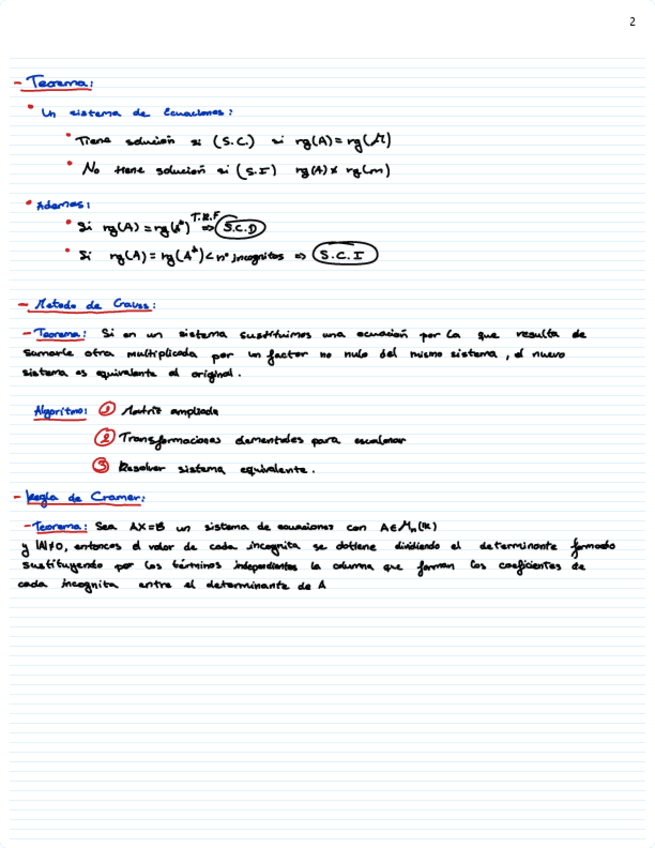 2
- Teorema:
• Un sistema de Ecuaciones:
• Tiene solución si (S.C.) si rg(A) = rg(M)
• No tiene solución si (S.I) rg(A) ≠ rg(m)
• Ademas:
• Si rg(A) = rg(A*) T.R.F ⇒ S.C.D
• Si rg(A) = rg(A*) < nº incognitas ⇒ S.C.I
- Metodo de Gauss:
- Teorema: Si en un sistema sustituimos una ecuación por la que resulta de
sumarle otra multiplicada por un factor no nulo del mismo sistema, el nuevo
sistema es equivalente al original.
Algoritmo: ① Matriz ampliada
② Transformaciones elementales para escalonar
③ Resolver sistema equivalente.
- Regla de Cramer:
- Teorema: Sea AX=B un sistema de ecuaciones con A∈Mn(K)
y |A|≠0, entonces el valor de cada incognita se obtiene dividiendo el determinante formado
sustituyendo por los términos independientes la columna que forman los coeficientes de
cada incognita entre el determinante de A